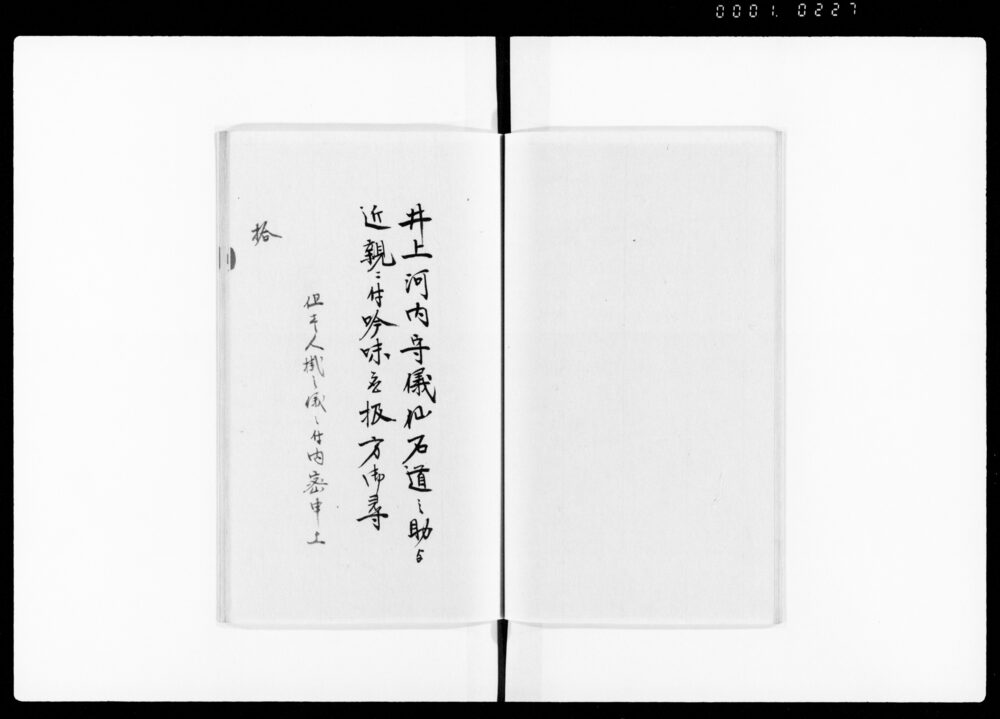 0001. 0227
井上河内守儀仙石道之助与
近親ニ付吟味立扱方御尋
但壱人掛之儀ニ付内密申上
拾